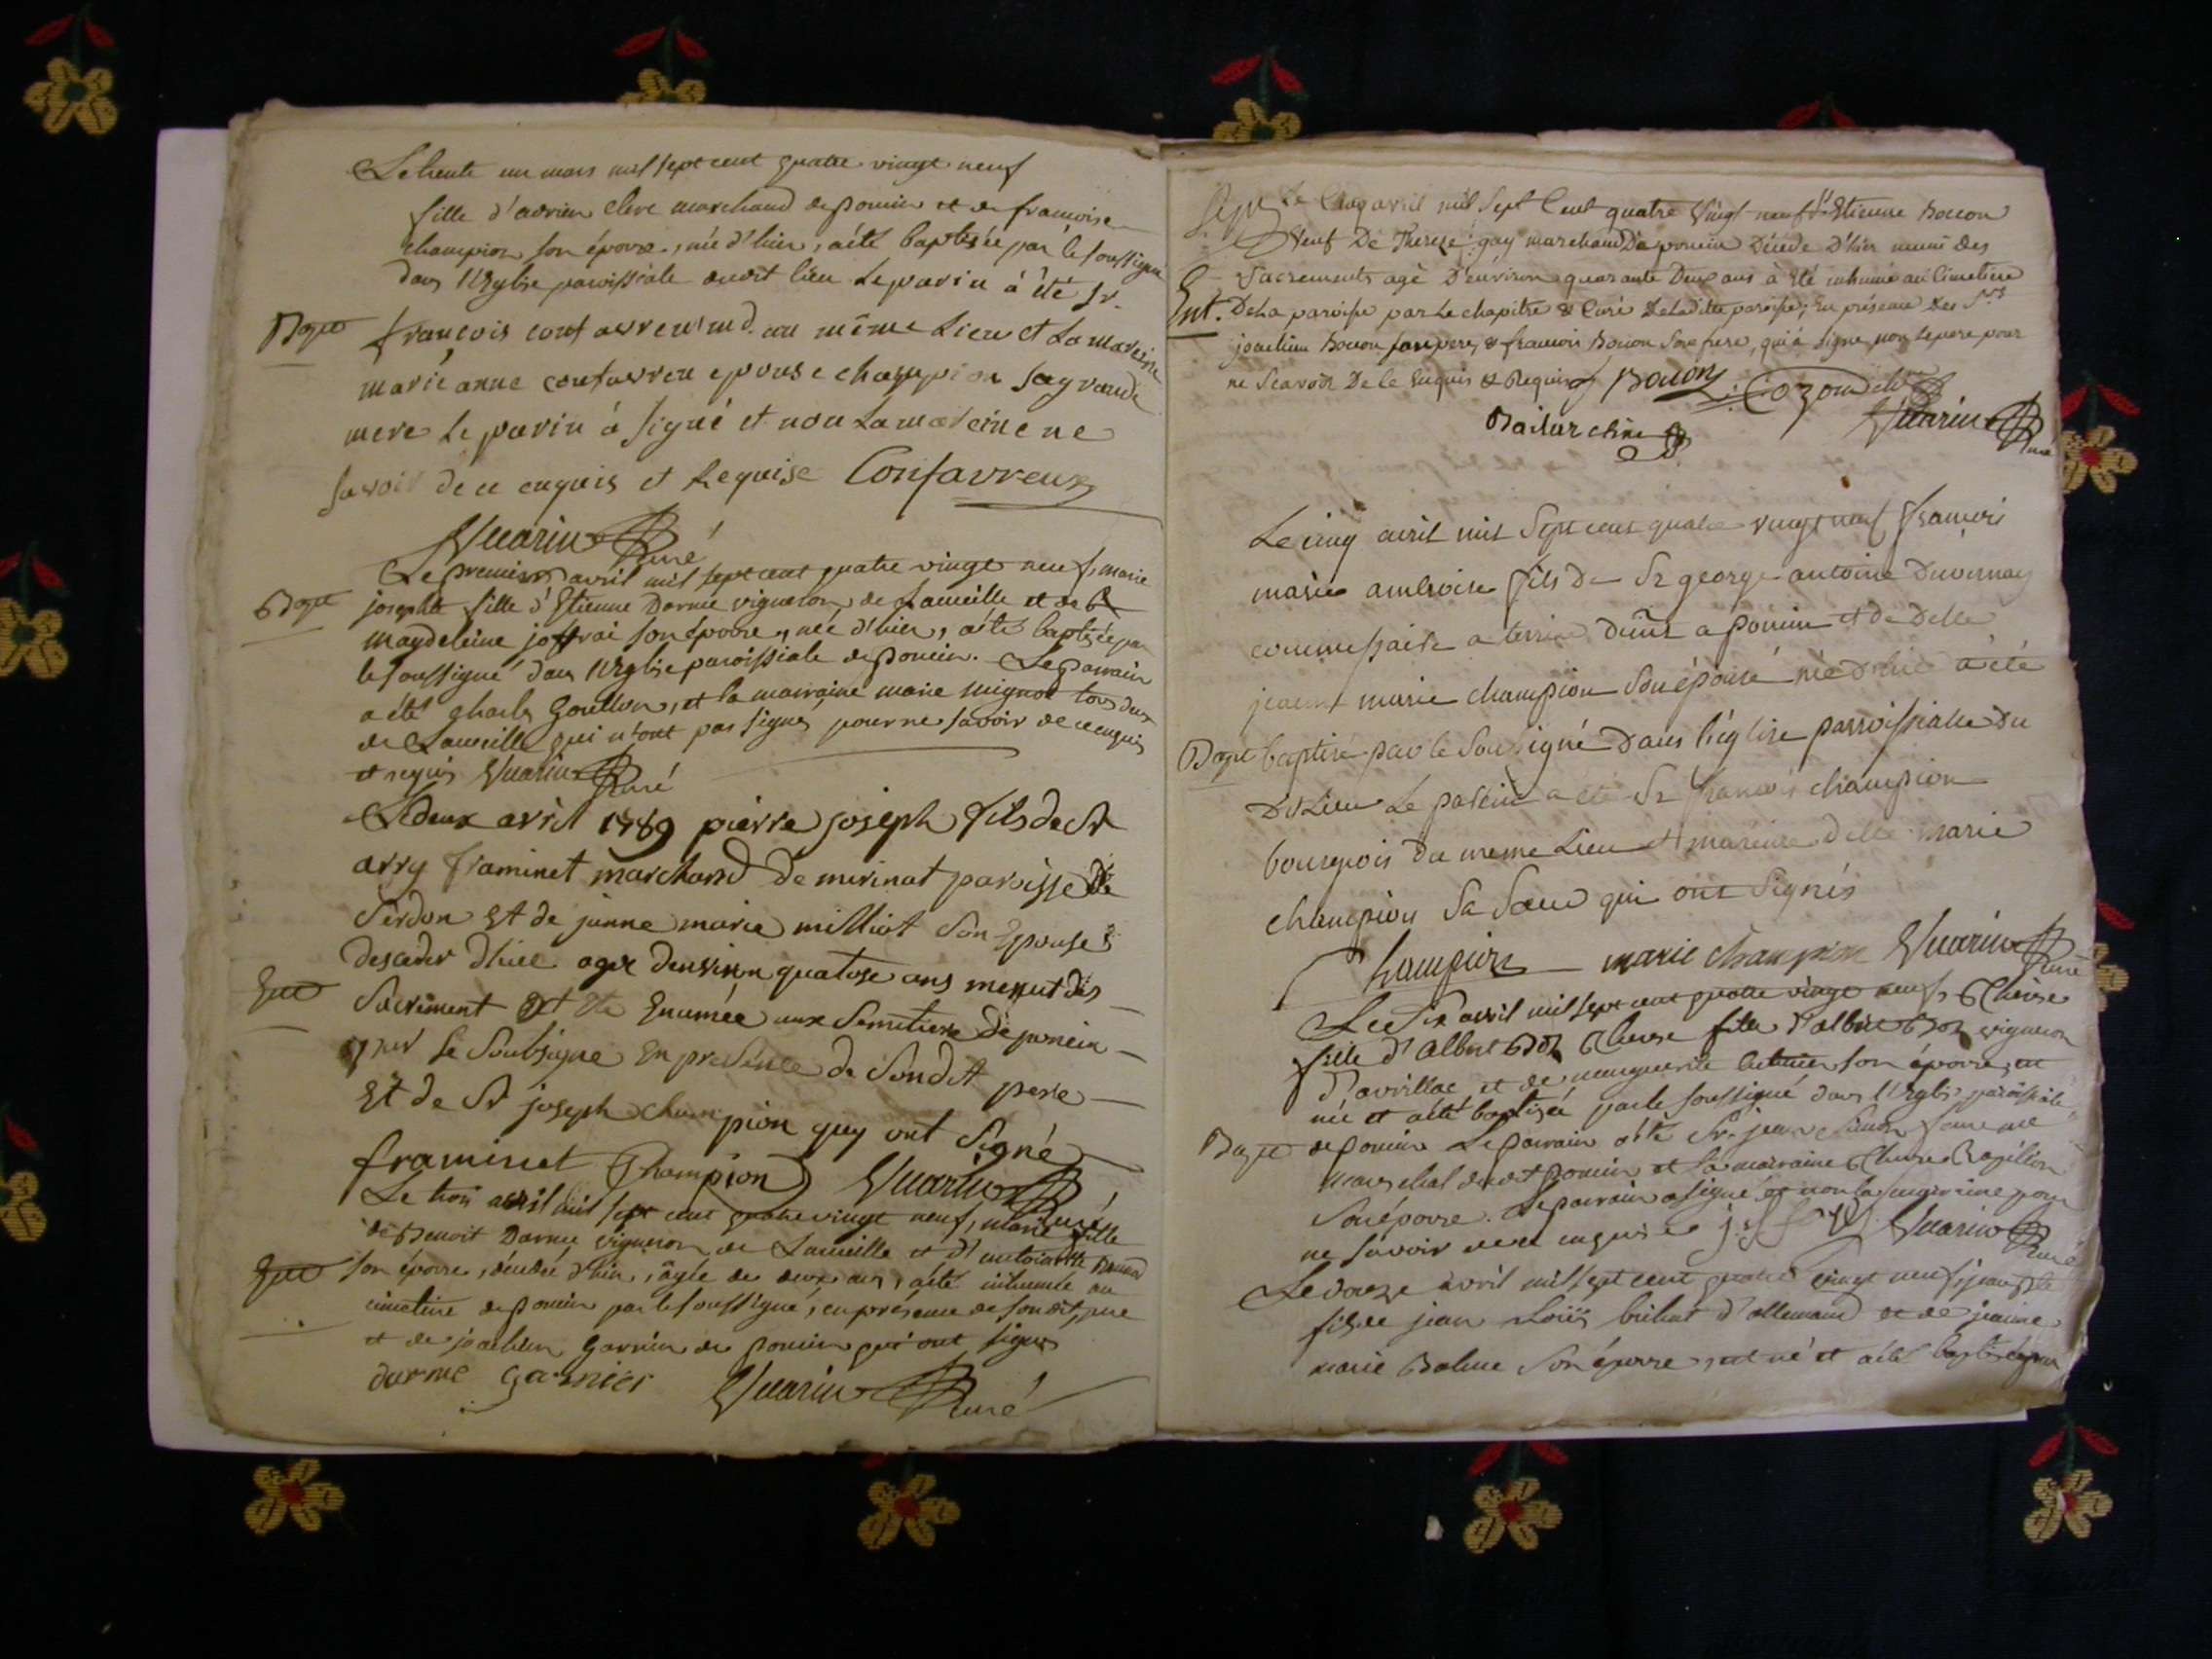 Le trente un mars mil sept cent quatre vingt neuf
fille d'adrien clerc marchand de poncin et de francoise
champion son épouse, née d'hier, a été baptisée par le soussigné
dans l'Eglise paroissiale dudit lieu Le parin à été Sr.
Bapt françois confavreux md. au même Lieu et La mareine
marie anne confavreu epouse champion sa grande
mere Le parin à signé et non La mareine ne
savoir de ce enquis et Requise Confavreux
Vuarin Curé
Le premier avril mil sept cent quatre vingt neuf, marie
Bapt josephte fille d'Etienne Darme vigneron de Laveille et de
magdeleine joffrai son épouse, née d'hier, a été baptisée par
le soussigné dans l'Eglise paroissiale de poncin. Le parrain
a été charles Goullon, et la marraine marie mignot tous deux
de Laveille qui n'ont pas signés pour ne savoir de ce enquis
et requis Vuarin Curé
Le deux avril 1789 pierre joseph fils de Sr
arry framinet marchand de merinat paroisse de
Serdon Et de janne marie milliot Son Epouse
descader d'hiee agee denviron quatose ans mennut des
Ent Sacrement Et Ete Enumée aux Semetiere de poncin
par Le Soubsigne En presence de Son dit pere
Et de Sr joseph champion quy ont Signé
framinet Champion Vuarin Curé
Le trois avril mil sept cent quatre vingt neuf, marie fille
de Benoit Darme vigneron de Laveille et d'antoinette
Ent son épouse, décédée d'hier, âgée de deux ans, a été inhumée au
cimetiere de poncin par le soussigné, en présence de son dit pere
et de joachim Garnier de poncin qui ont signés
darme Garnier Vuarin Curé
Sept Le Cinq avril mil Sept Cent quatre Vingt neuf Sr Etienne Bocon
Veuf De Therese gay marchand Da poncin Décéde D'hier muni des
Sacrements agé D'environ quarante Deux ans a Eté inhumé au Cimetiere
Ent. De La paroisse par Le chapitre & Curé De Laditte paroisse, En présence Des Srs
joachim Bocon son pere, & francois Bocon Son frere, qui a signé non le pere pour
ne Scavoir De Ce Enquis & Requis f Bocon Cozon
Vuarin Curé
Le cinq avril mil Sept cent quatre vingt neuf francois
marie ambroise fils de Sr george antoine Duvernay
commissaire a terrier demt a poncin et de Delle
jeanne marie champion Son épouse né d'hier a été
Bapt baptisé par le Sousigné Dans l'église parroissialle du
Dt Lieu Le parein a été Sr francois champion
bourgeois du meme Lieu et mareine delle marie
champion Sa Sœur qui ont Signés
Champion marie champion Vuarin Curé
Le Six avril mil sept cent quatre vingt neuf, Therese
fille d'Albert Therese fille d'albert vigneron
D'avrillac et de marguerite son épouse, est
née et a été baptisée par le soussigné dans l'Eglise paroissiale
Bapt de poncin Le parrain a été Sr. jean
marechal dudit poncin et la marraine Therese
Son épouse. Le parrain a signé et non la marraine pour
ne savoir de ce enquise Vuarin Curé
Le douze avril mil sept cent quatre vingt neuf, jean
fils de jean Loüis d'allemand et de jeanne
marie Balme Son épouse, est né et a été baptisé par